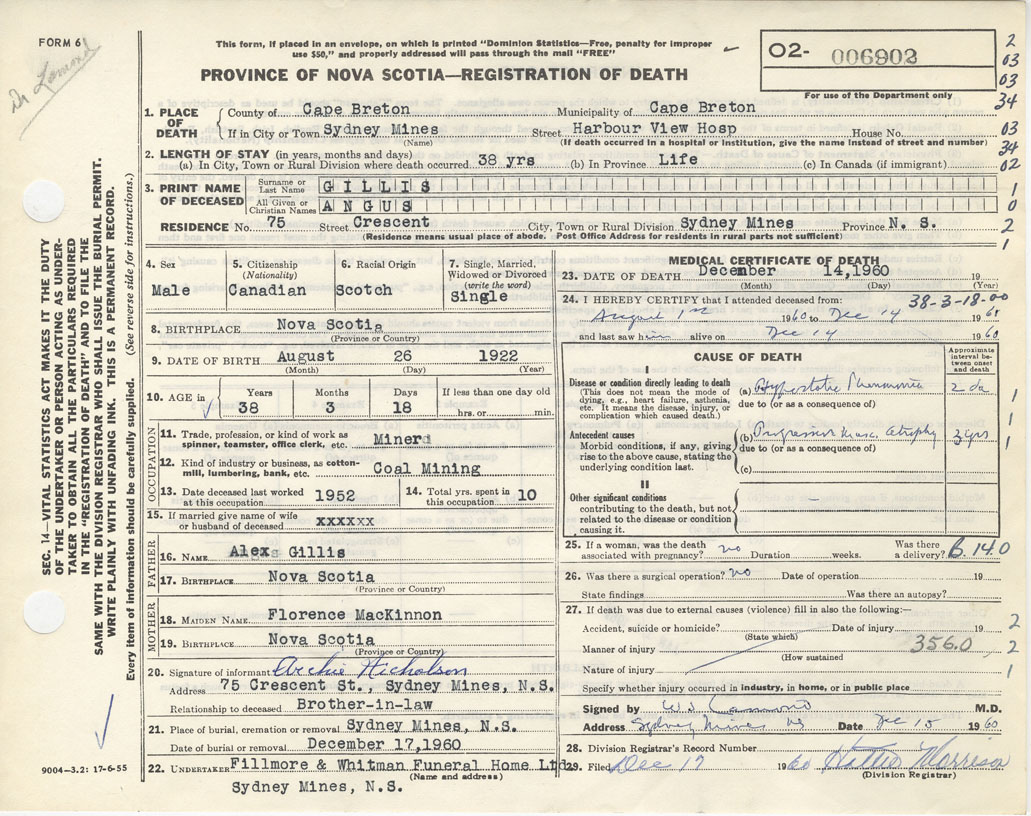 FORM 6
Dr Lamond
This form, if placed in an envelope, on which is printed "Dominion Statistics—Free, penalty for improper
use $50," and properly addressed will pass through the mail "FREE"
PROVINCE OF NOVA SCOTIA—REGISTRATION OF DEATH
O2- 006902
For use of the Department only
2
03
03
34
03
34
02
1
0
2
1
1. PLACE OF DEATH
County of Cape Breton Municipality of Cape Breton
If in City or Town Sydney Mines Street Harbour View Hosp House No.
(Name) (If death occurred in a hospital or institution, give the name instead of street and number)
2. LENGTH OF STAY (in years, months and days)
(a) In City, Town or Rural Division where death occurred 38 yrs (b) In Province Life (c) In Canada (if immigrant)
3. PRINT NAME OF DECEASED
Surname or Last Name GILLIS
All Given or Christian Names ANGUS
RESIDENCE No. 75 Street Crescent City, Town or Rural Division Sydney Mines Province N. S.
(Residence means usual place of abode. Post Office Address for residents in rural parts not sufficient)
4. Sex
Male
5. Citizenship
(Nationality)
Canadian
6. Racial Origin
Scotch
7. Single, Married, Widowed or Divorced
(write the word)
Single
8. BIRTHPLACE Nova Scotia
(Province or Country)
9. DATE OF BIRTH August 26 1922
(Month) (Day) (Year)
10. AGE in Years Months Days If less than one day old
38 3 18 hrs. or min.
OCCUPATION
11. Trade, profession, or kind of work as spinner, teamster, office clerk, etc. Miner
12. Kind of industry or business, as cotton-mill, lumbering, bank, etc. Coal Mining
13. Date deceased last worked at this occupation 1952
14. Total yrs. spent in this occupation 10
15. If married give name of wife or husband of deceased xxxxxx
FATHER
16. NAME Alex Gillis
17. BIRTHPLACE Nova Scotia
(Province or Country)
MOTHER
18. MAIDEN NAME Florence MacKinnon
19. BIRTHPLACE Nova Scotia
(Province or Country)
20. Signature of informant Archie Nicholson
Address 75 Crescent St., Sydney Mines, N.S.
Relationship to deceased Brother-in-law
21. Place of burial, cremation or removal Sydney Mines, N.S.
Date of burial or removal December 17,1960
22. UNDERTAKER Fillmore & Whitman Funeral Home Ltd.
(Name and address)
Sydney Mines, N.S.
MEDICAL CERTIFICATE OF DEATH
23. DATE OF DEATH December 14,1960 19
(Month) (Day) (Year)
24. I HEREBY CERTIFY that I attended deceased from: 38-3-18-00
August 1st 1960 to Dec 14 1960
and last saw him alive on Dec 14 1960
CAUSE OF DEATH
Approximate interval between onset and death
I
Disease or condition directly leading to death
(This does not mean the mode of dying, e.g., heart failure, asthenia, etc. It means the disease, injury, or complication which caused death.)
(a) Hypostatic Pneumonia 2 da
due to (or as a consequence of)
Antecedent causes
Morbid conditions, if any, giving rise to the above cause, stating the underlying condition last.
(b) Progressive Musc. Atrophy 3 yrs
due to (or as a consequence of)
(c)
II
Other significant conditions
contributing to the death, but not related to the disease or condition causing it.
1
1
1
25. If a woman, was the death associated with pregnancy? no Duration weeks. Was there a delivery? B 140
26. Was there a surgical operation? no Date of operation 19
State findings Was there an autopsy?
27. If death was due to external causes (violence) fill in also the following:—
Accident, suicide or homicide? Date of injury 19
(State which)
Manner of injury 356.0
(How sustained)
Nature of injury
2
2
1
Specify whether injury occurred in industry, in home, or in public place
Signed by M.D.
Address Sydney Mines NS Date Dec 15 1960
28. Division Registrar's Record Number
29. Filed Dec 17 1960 Hattie Morrison
(Division Registrar)
SEC. 14—VITAL STATISTICS ACT MAKES IT THE DUTY
OF THE UNDERTAKER OR PERSON ACTING AS UNDER-
TAKER TO OBTAIN ALL THE PARTICULARS REQUIRED
IN THE "REGISTRATION OF DEATH" AND TO FILE THE
SAME WITH THE DIVISION REGISTRAR WHO SHALL ISSUE THE BURIAL PERMIT.
WRITE PLAINLY WITH UNFADING INK. THIS IS A PERMANENT RECORD.
Every item of information should be carefully supplied. (See reverse side for instructions.)
9004-3.2: 17-6-55